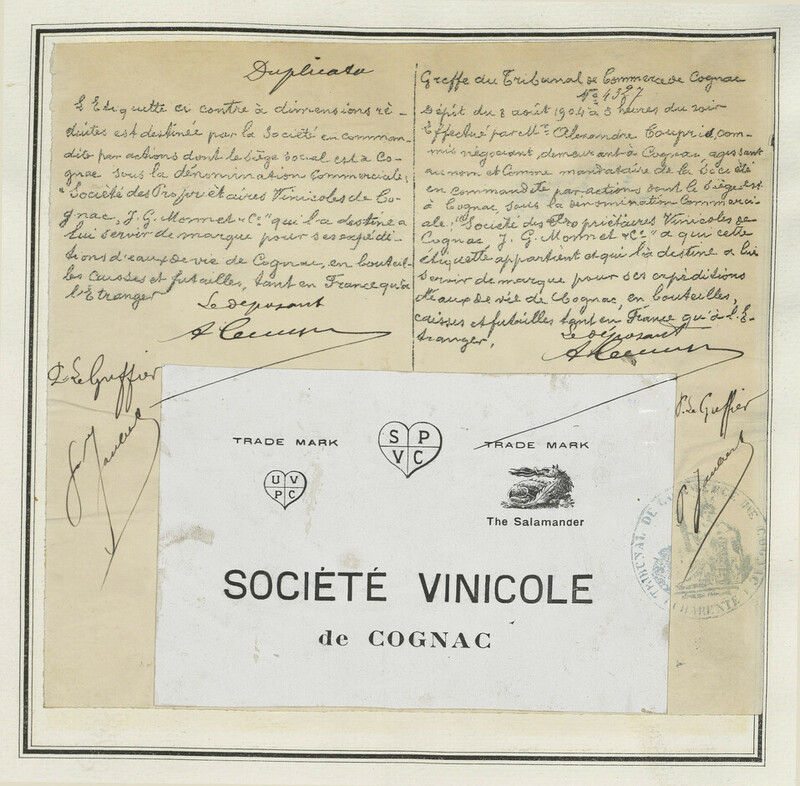 Duplicata
L'Etiquette ci contre à dimensions ré-
duites est destinée par la Société en comman-
dite par actions dont le siège social est à Co-
gnac sous la dénomination commerciale:
"Société des Propriétaires Vinicoles de Co-
gnac, J. G. Monnet & Cie" qui l'a destine a
lui servir de marque pour ses expédi-
tions d'eaux de vie de Cognac, en bouteil-
les caisses et futailles, tant en France qu'à
l'Etranger
Le déposant
P. Le Greffier
Greffe du Tribunal de Commerce de Cognac
No 4327
Dépôt du 2 août 1904 à 3 heures du soir
Effectué par Mr. Alexandre Couprie, com-
mis négociant, demeurant à Cognac, agissant
au nom et comme mandataire de la Société
en commandite par actions dont le siège est
à Cognac, sous la dénomination commerci-
ale: "Société des Propriétaires Vinicoles de
Cognac, J. G. Monnet & Cie" a qui cette
étiquette appartient et qui la destine a lui
servir de marque pour ses expéditions
d'eaux de vie de Cognac, en bouteilles,
caisses et futailles tant en France qu'à l'E-
tranger.
Le déposant
P. Le Greffier
TRADE MARK
U V
P C
S P
V C
TRADE MARK
The Salamander
SOCIÉTÉ VINICOLE
de COGNAC
TRIBUNAL DE COMMERCE DE COGNAC
CHARENTE